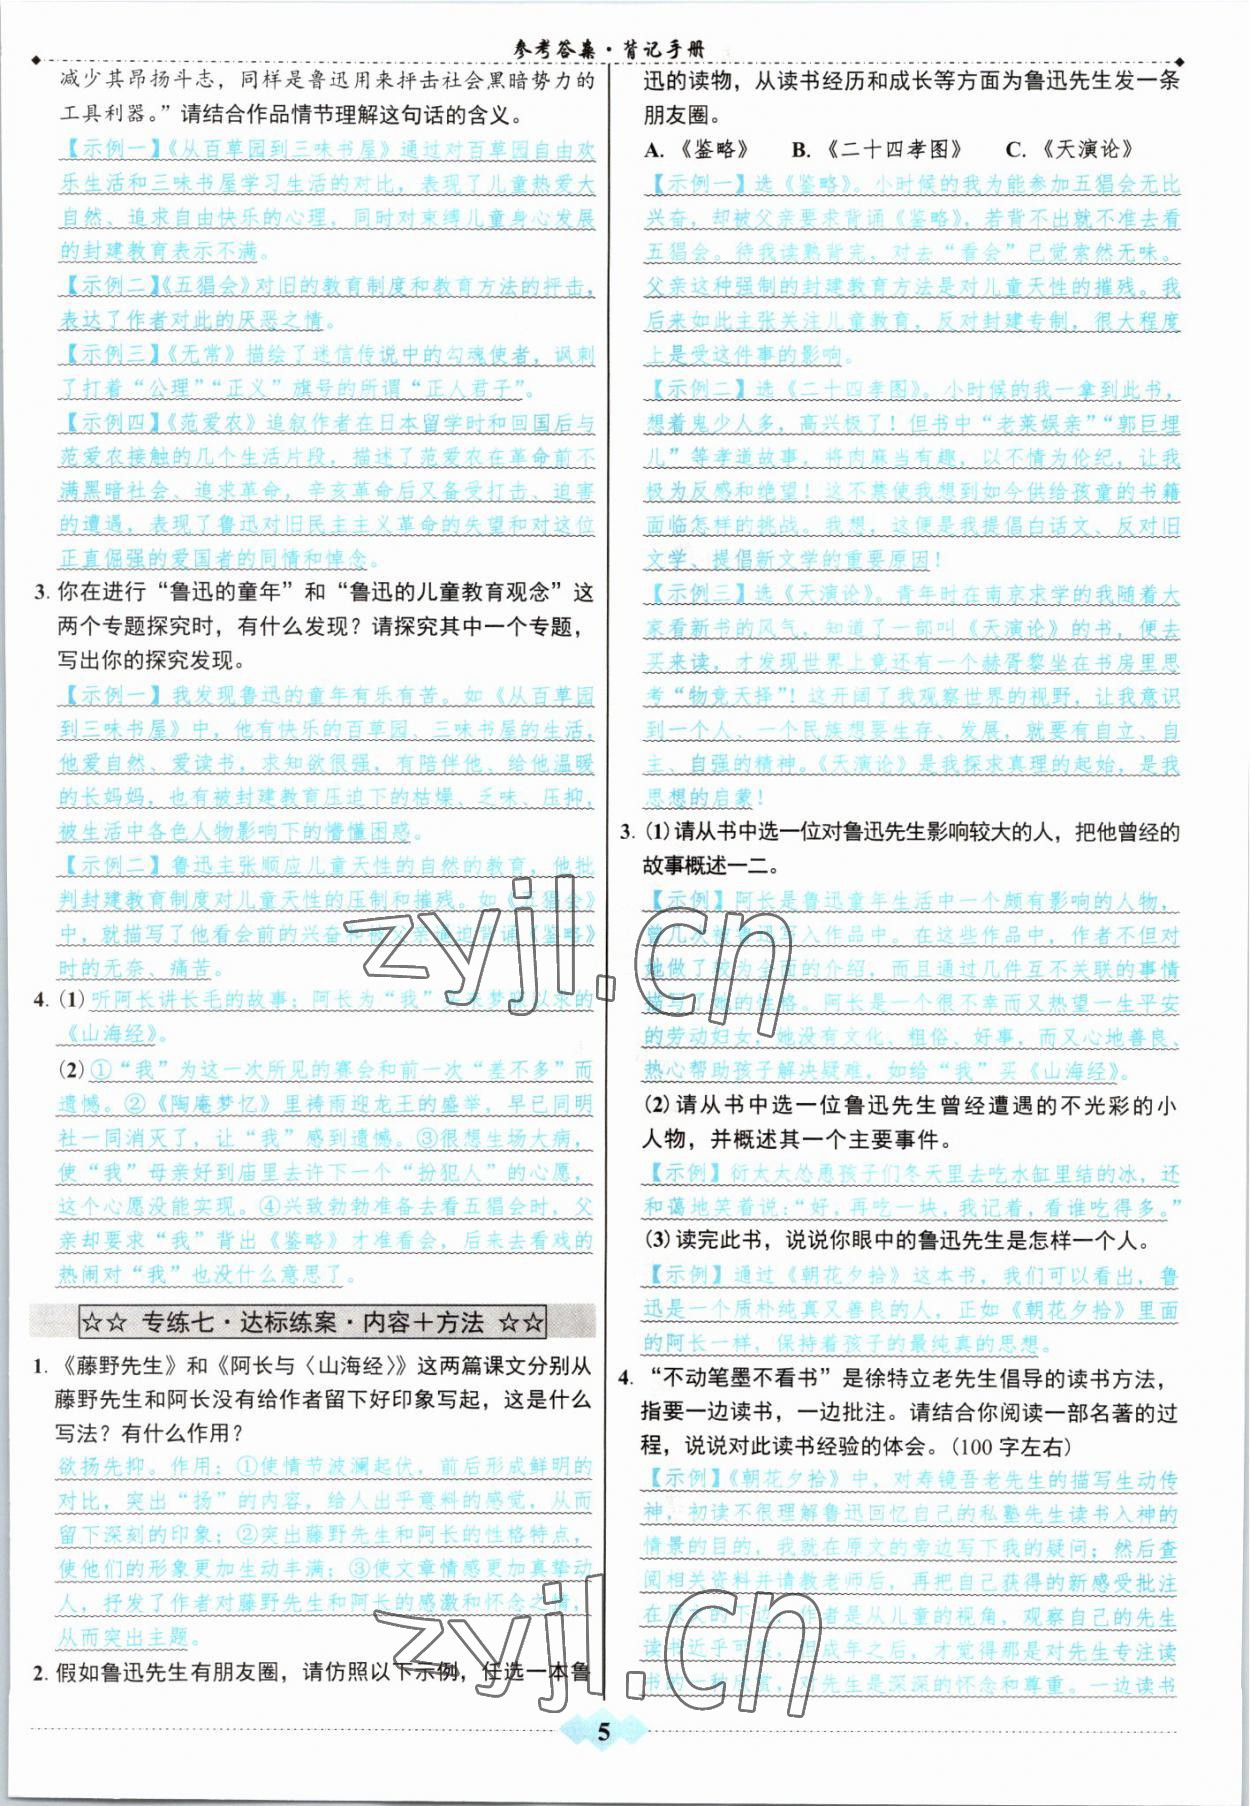 参考答案·背记手册
减少其昂扬斗志，同样是鲁迅用来抨击社会黑暗势力的
工具利器。”请结合作品情节理解这句话的含义。
【示例一】《从百草园到三味书屋》通过对百草园自由欢
乐生活和三味书屋学习生活的对比，表现了儿童热爱大
自然、追求自由快乐的心理，同时对束缚儿童身心发展
的封建教育表示不满。
【示例二】《五猖会》对旧的教育制度和教育方法的抨击，
表达了作者对此的厌恶之情。
【示例三】《无常》描绘了迷信传说中的勾魂使者，讽刺
了打着“公理”“正义”旗号的所谓“正人君子”。
【示例四】《范爱农》追叙作者在日本留学时和回国后与
范爱农接触的几个生活片段，描述了范爱农在革命前不
满黑暗社会、追求革命，辛亥革命后又备受打击、迫害
的遭遇，表现了鲁迅对旧民主主义革命的失望和对这位
正直倔强的爱国者的同情和悼念。
3. 你在进行“鲁迅的童年”和“鲁迅的儿童教育观念”这
两个专题探究时，有什么发现？请探究其中一个专题，
写出你的探究发现。
【示例一】我发现鲁迅的童年有乐有苦。如《从百草园
到三味书屋》中，他有快乐的百草园、三味书屋的生活，
他爱自然、爱读书，求知欲很强，有陪伴他、给他温暖
的长妈妈，也有被封建教育压迫下的枯燥、乏味、压抑，
被生活中各色人物影响下的懵懂困惑。
【示例二】鲁迅主张顺应儿童天性的自然的教育，他批
判封建教育制度对儿童天性的压制和摧残。如《五猖会》
中，就描写了他看会前的兴奋和父亲逼迫背诵《鉴略》
时的无奈、痛苦。
4. (1)听阿长讲长毛的故事；阿长为“我”买来梦寐以求的
《山海经》。
(2)①“我”为这一次所见的赛会和前一次“差不多”而
遗憾。②《陶庵梦忆》里祷雨迎龙王的盛举，早已同明
社一同消灭了，让“我”感到遗憾。③很想生场大病，
使“我”母亲好到庙里去许下一个“扮犯人”的心愿，
这个心愿没能实现。④兴致勃勃准备去看五猖会时，父
亲却要求“我”背出《鉴略》才准看会，后来去看五猖会的
热闹对“我”也没什么意思了。
☆☆ 专练七·达标练案·内容＋方法 ☆☆
1. 《藤野先生》和《阿长与〈山海经〉》这两篇课文分别从
藤野先生和阿长没有给作者留下好印象写起，这是什么
写法？有什么作用？
欲扬先抑。作用：①使情节波澜起伏，前后形成鲜明的
对比，突出“扬”的内容，给人出乎意料的感觉，从而
留下深刻的印象；②突出藤野先生和阿长的性格特点，
使他们的形象更加生动丰满；③使文章情感更加真挚动
人，抒发了作者对藤野先生和阿长的感激和怀念之情，
从而突出主题。
2. 假如鲁迅先生有朋友圈，请仿照以下示例，任选一本鲁
迅的读物，从读书经历和成长等方面为鲁迅先生发一条
朋友圈。
A.《鉴略》 B.《二十四孝图》 C.《天演论》
【示例一】选《鉴略》。小时候的我为能参加五猖会无比
兴奋，却被父亲要求背诵《鉴略》，若背不出就不准去看
五猖会。待我读熟背完，对去“看会”已觉索然无味。
父亲这种强制的封建教育方法是对儿童天性的摧残。我
后来如此主张关注儿童教育，反对封建专制，很大程度
上是受这件事的影响。
【示例二】选《二十四孝图》。小时候的我一拿到此书，
想着鬼少人多，高兴极了！但书中“老莱娱亲”“郭巨埋
儿”等孝道故事，将肉麻当有趣，以不情为伦纪，让我
极为反感和绝望！这不禁使我想到如今供给孩童的书籍
面临怎样的挑战。我想，这便是我提倡白话文、反对旧
文学、提倡新文学的重要原因！
【示例三】选《天演论》。青年时在南京求学的我随着大
家看新书的风气，知道了一部叫《天演论》的书，便去
买来读，才发现世界上竟还有一个赫胥黎坐在书房里思
考“物竞天择”！这开阔了我观察世界的视野，让我意识
到一个人、一个民族想要生存、发展，就要有自立、自
主、自强的精神。《天演论》是我探求真理的起始，是我
思想的启蒙！
3. (1)请从书中选一位对鲁迅先生影响较大的人，把他曾经的
故事概述一二。
【示例】阿长是鲁迅童年生活中一个颇有影响的人物，
曾几次被鲁迅写入作品中。在这些作品中，作者不但对
她做了较为全面的介绍，而且通过几件互不关联的事情
描写了她的性格。阿长是一个很不幸而又热望一生平安
的劳动妇女，她没有文化、粗俗、好事，而又心地善良、
热心帮助孩子解决疑难，如给“我”买《山海经》。
(2)请从书中选一位鲁迅先生曾经遭遇的不光彩的小
人物，并概述其一个主要事件。
【示例】衍太太怂恿孩子们冬天里去吃水缸里结的冰，还
和蔼地笑着说：“好，再吃一块，我记着，看谁吃得多。”
(3)读完此书，说说你眼中的鲁迅先生是怎样一个人。
【示例】通过《朝花夕拾》这本书，我们可以看出，鲁
迅是一个质朴纯真又善良的人，正如《朝花夕拾》里面
的阿长一样，保持着孩子的最纯真的思想。
4. “不动笔墨不看书”是徐特立老先生倡导的读书方法，
指要一边读书，一边批注。请结合你阅读一部名著的过
程，说说对此读书经验的体会。(100字左右)
【示例】《朝花夕拾》中，对寿镜吾老先生的描写生动传
神，初读不很理解鲁迅回忆自己的私塾先生读书入神的
情景的目的，我就在原文的旁边写下我的疑问；然后查
阅相关资料并请教老师后，再把自己获得的新感受批注
在原文的下边：作者是从儿童的视角，观察自己的先生
读书近乎可笑，但成年之后，才觉得那是对先生专注读
书的一种欣赏，对先生是深深的怀念和尊重。一边读书
5
zyjl.cn
zyjl.cn